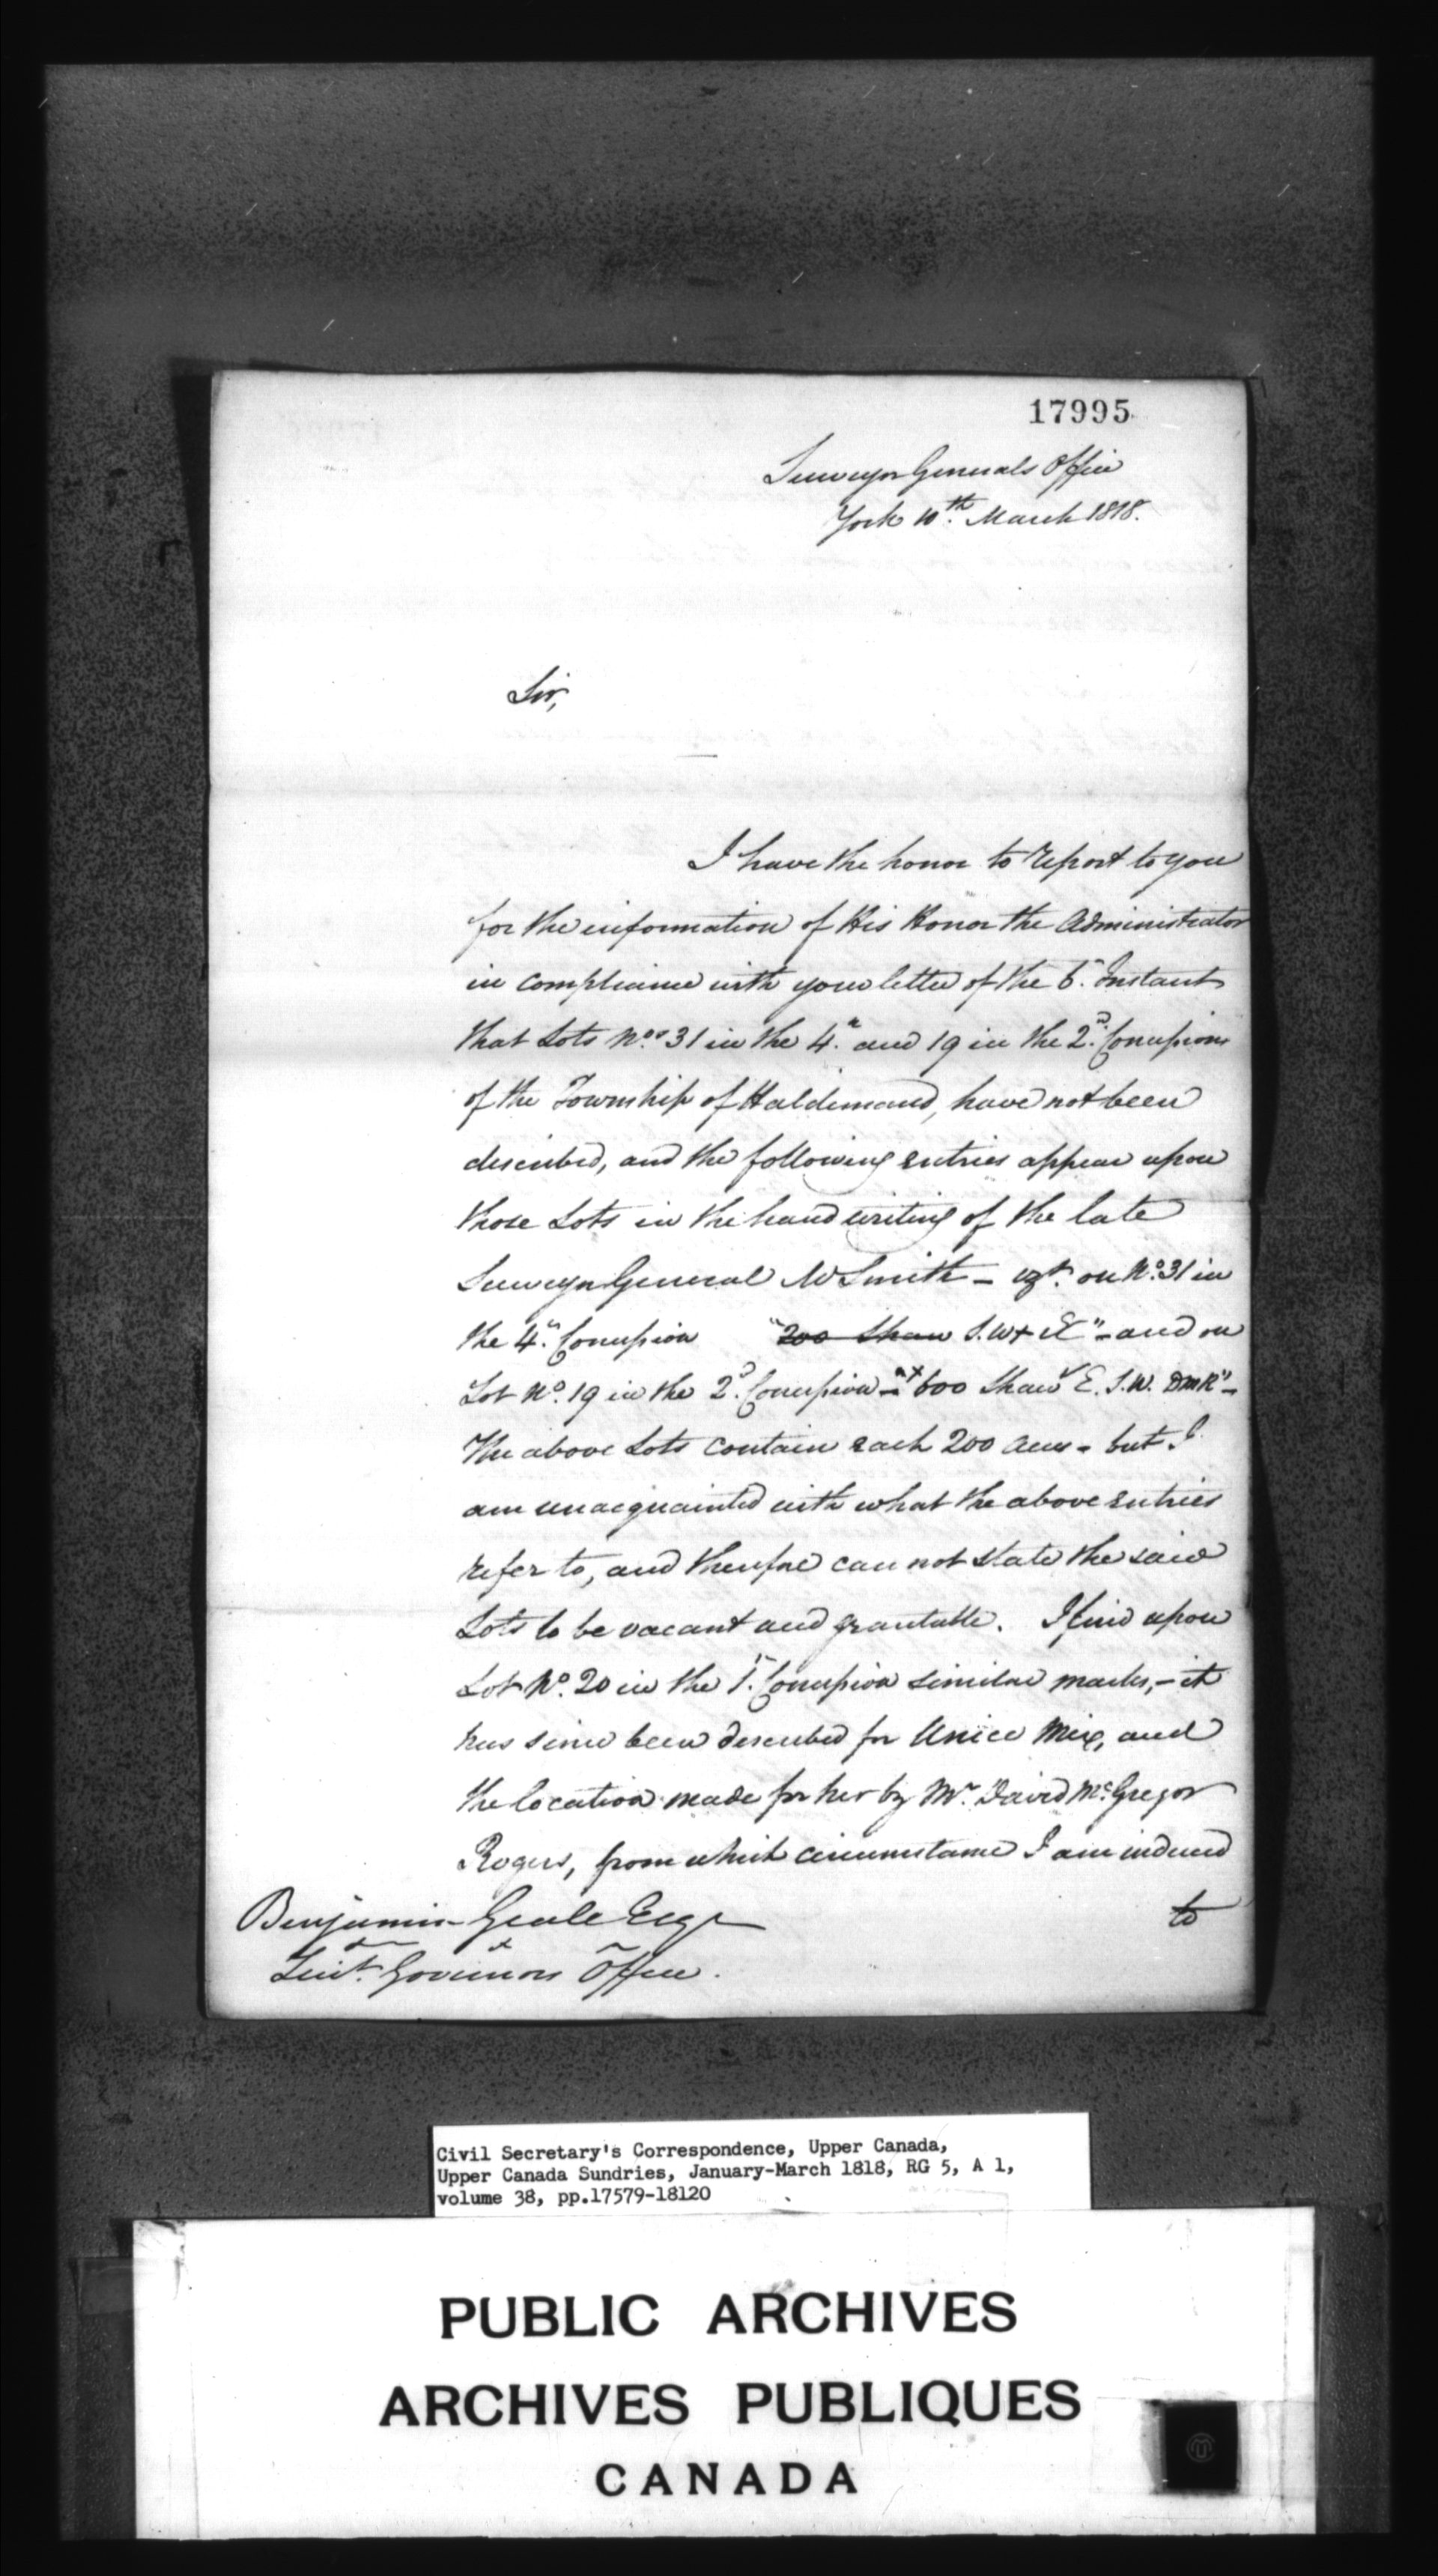 17995
Surveyor Generals Office
York 10th March 1818.
Sir,
I have the honor to report to you
for the information of His Honor the Administrator
in compliance with your letter of the 6th Instant
that Lots Nos 31 in the 4th and 19 in the 2d Concessions
of the Township of Haldimand, have not been
described, and the following entries appear upon
those Lots in the hand writing of the late
Surveyor General Mr Smith – vizt on No 31 in
the 4th Concession "200 Shaw S.W+ E" – and on
Lot No. 19 in the 2d Concession – "+ 600 Shaw E. S.W. DmR" –
The above Lots contain each 200 acres – but I
am unacquainted with what the above entries
refer to, and therefore can not state the said
Lots to be vacant and grantable. I find upon
Lot No. 20 in the 1st Concession similar marks, – it
has since been described for Unice Mix, and
the location made for her by Mr David McGregor
Rogers, from which circumstance I am induced
to
Benjamin Geale Esqr
Lieut. Governors Office.
Civil Secretary's Correspondence, Upper Canada,
Upper Canada Sundries, January-March 1818, RG 5, A 1,
volume 38, pp.17579-18120
PUBLIC ARCHIVES
ARCHIVES PUBLIQUES
CANADA